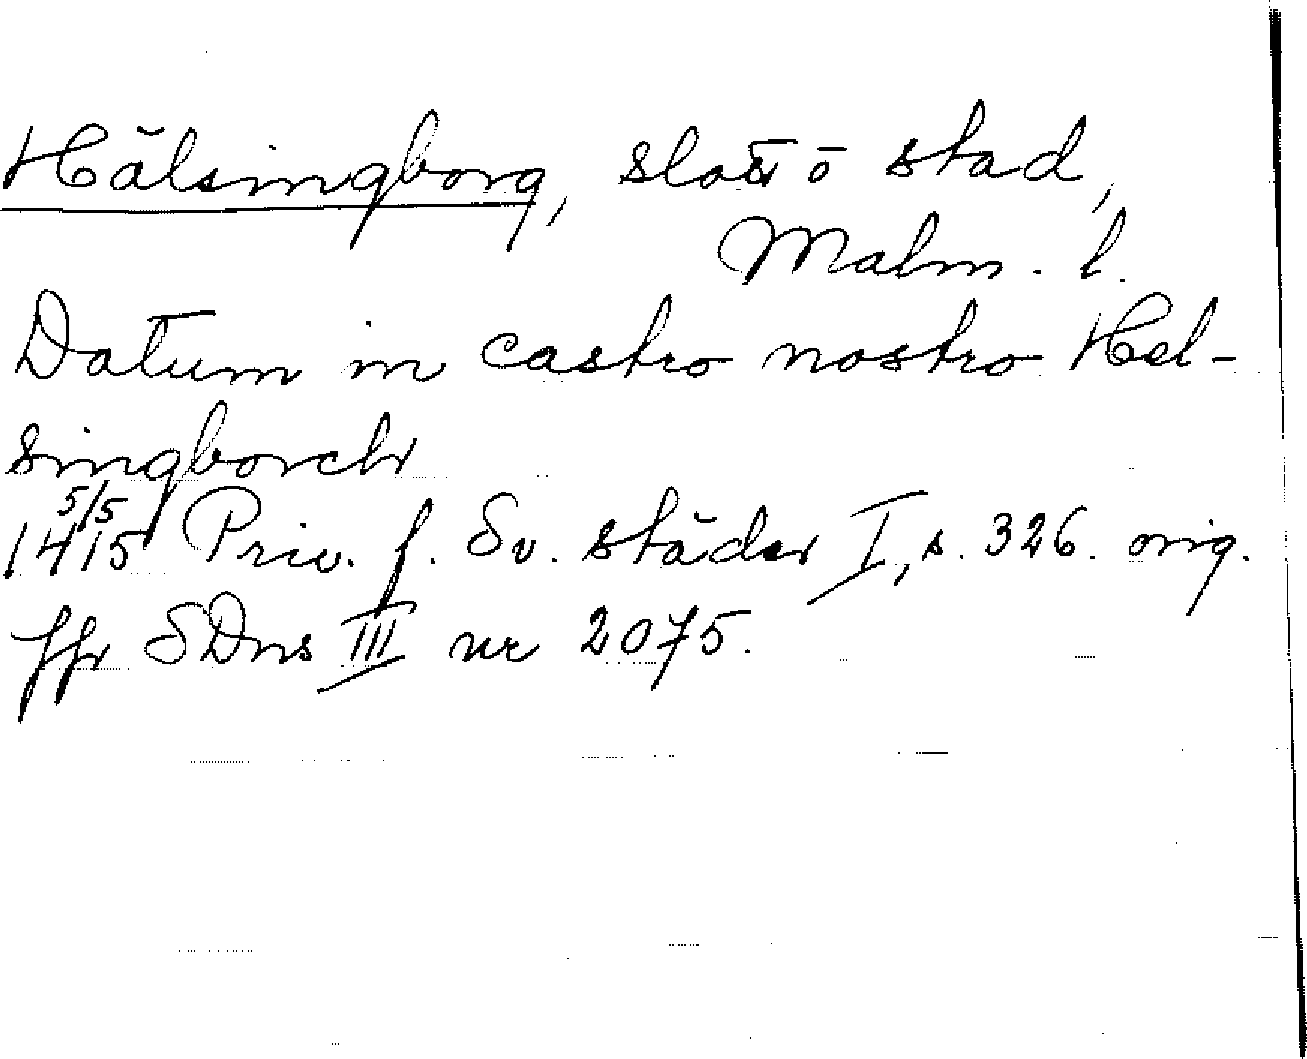 Hälsingborg, slott o stad,
Malm. l.
Datum in castro nostro Hel-
singborch
1415 5/5 Priv. f. Sv. städer I, s. 326. orig.
Jfr SDns III nr 2075.